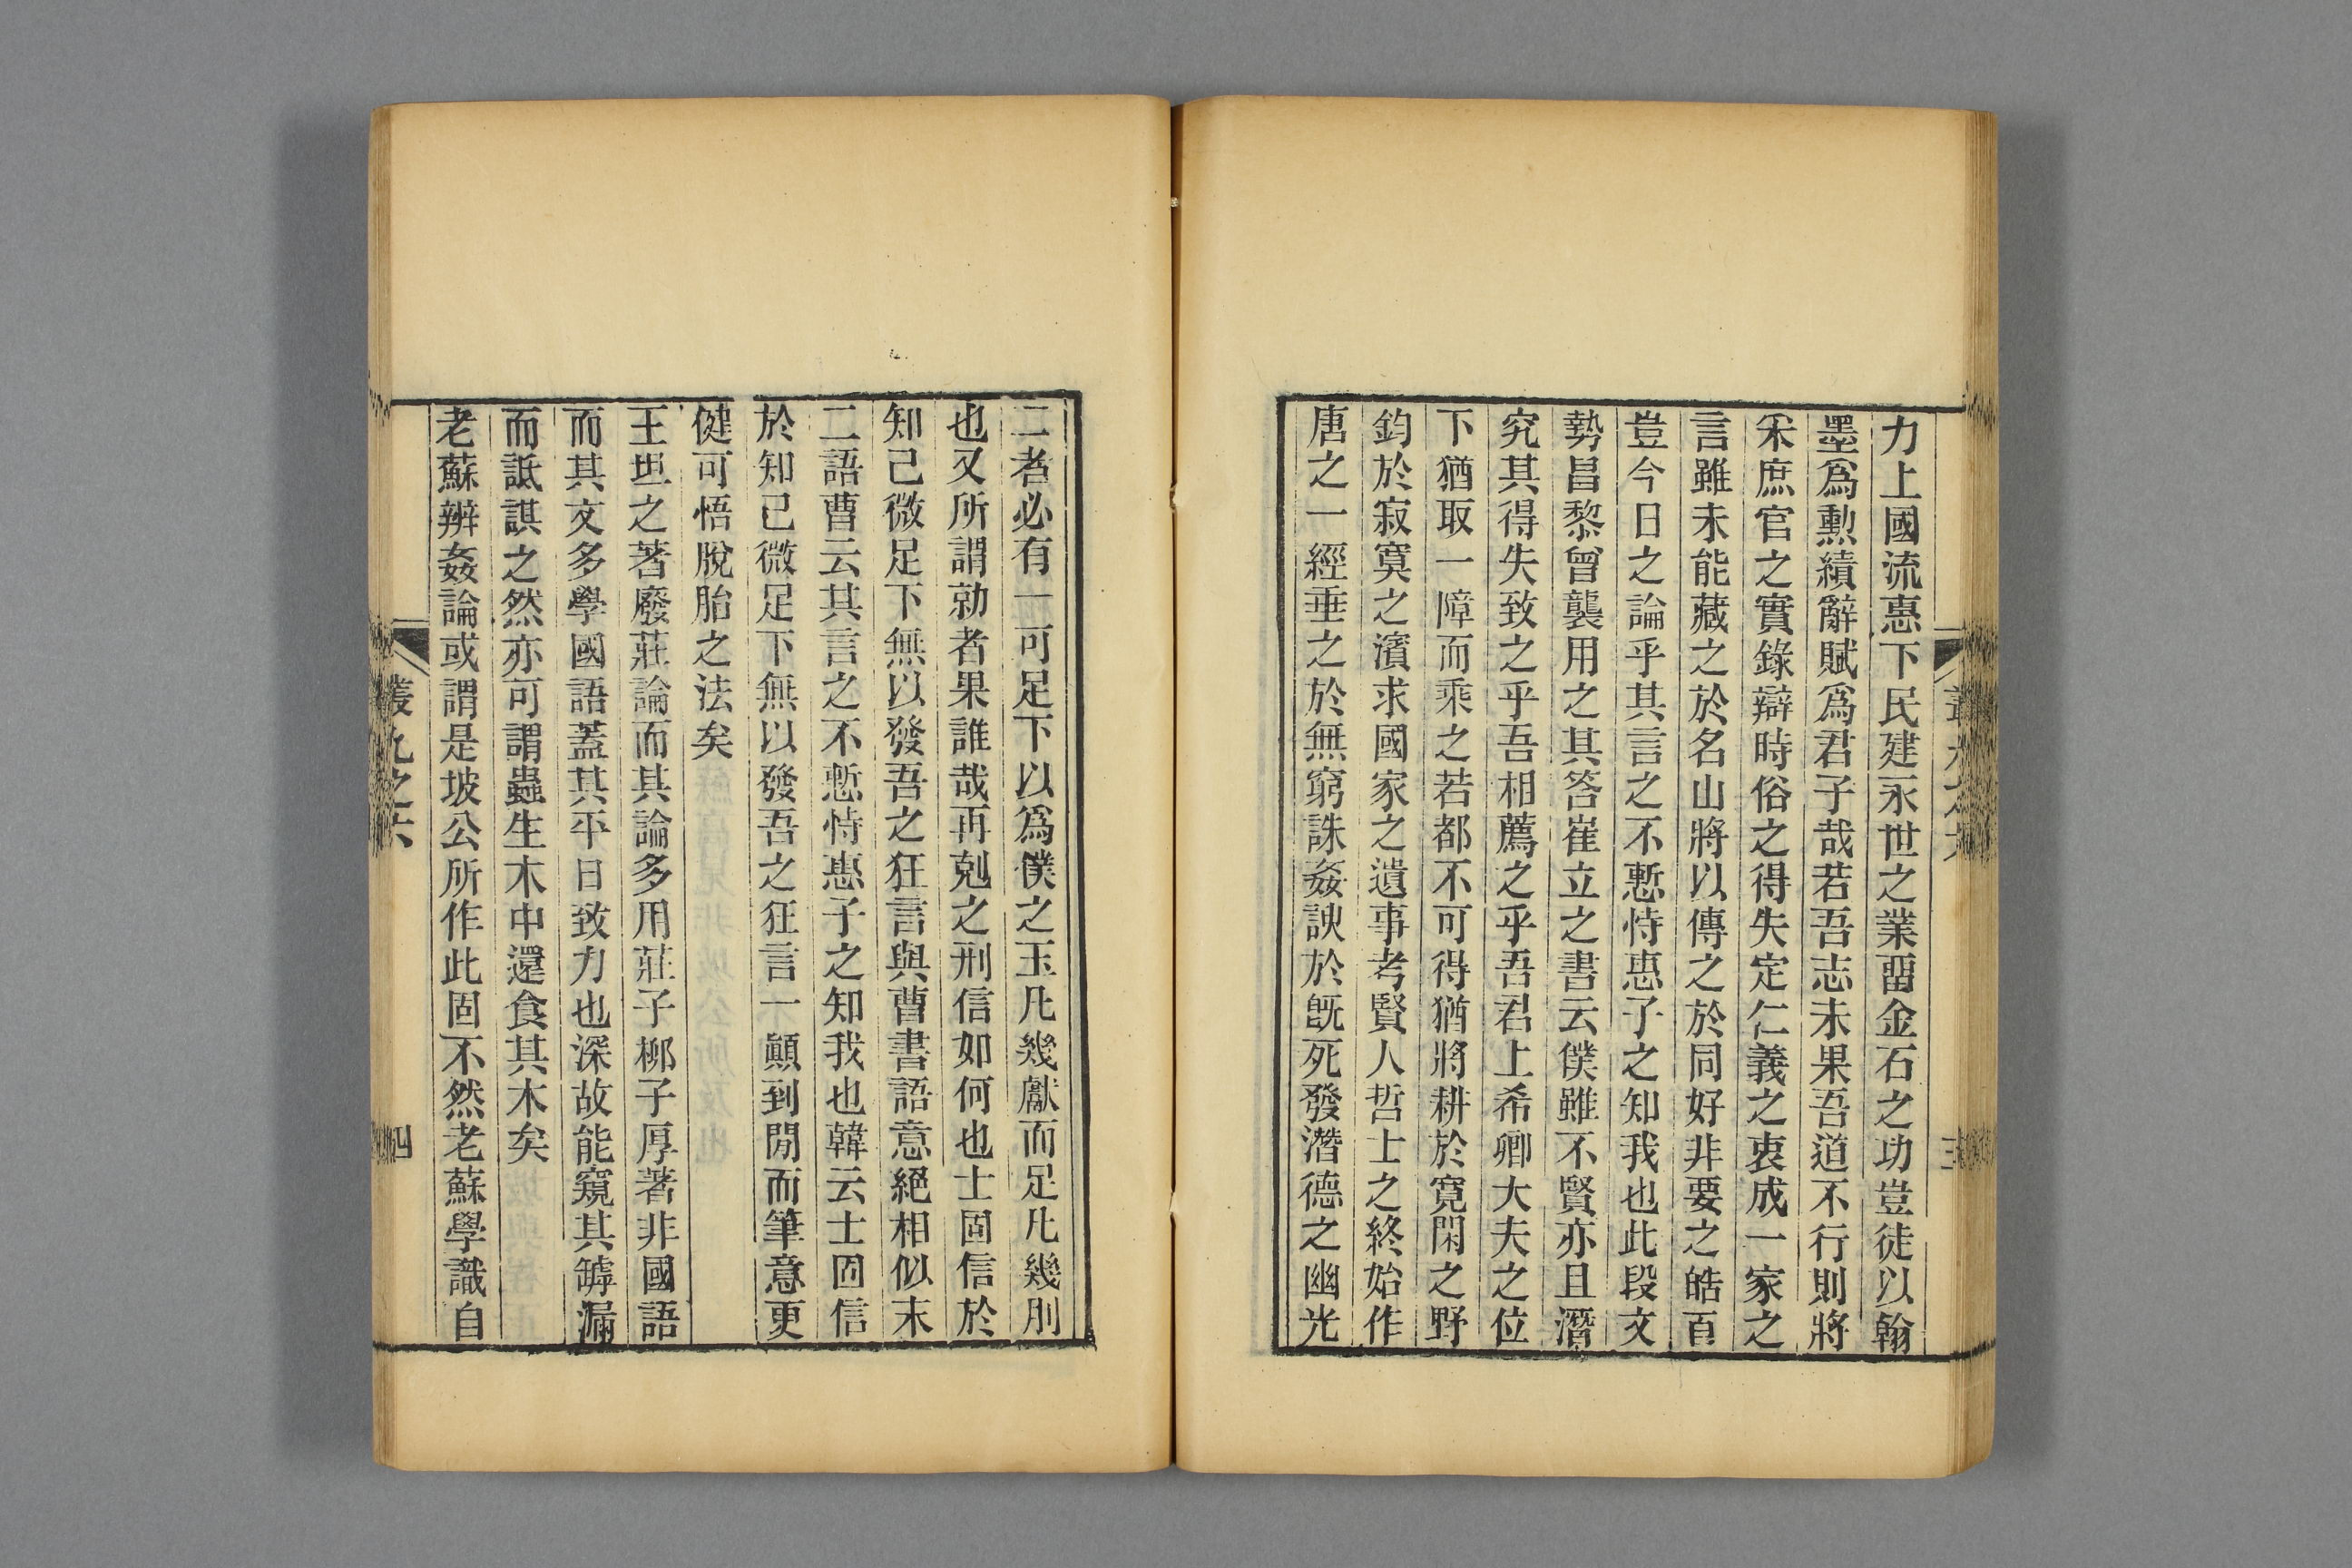 力上國流惠下民建永世之業畱金石之功豈徒以翰
墨爲勲績辭賦爲君子哉若吾志未果吾道不行則將
采庶官之實錄辯時俗之得失定仁義之衷成一家之
言雖未能藏之於名山將以傳之於同好非要之皓首
豈今日之論乎其言之不慙恃惠子之知我也此段文
勢昌黎曾襲用之其答崔立之書云僕雖不賢亦且潛
究其得失致之乎吾相薦之乎吾君上希卿大夫之位
下猶取一障而乘之若都不可得猶將耕於寬閑之野
釣於寂寞之濱求國家之遺事考賢人哲士之終始作
唐之一經垂之於無窮誅姦諛於旣死發潛德之幽光
三
二者必有一可足下以爲僕之玉凡幾獻而足凡幾刖
也又所謂勍者果誰哉再剋之刑信如何也士固信於
知己微足下無以發吾之狂言與曹書語意絕相似末
二語曹云其言之不慙恃惠子之知我也韓云士固信
於知己微足下無以發吾之狂言一顚到閒而筆意更
健可悟脫胎之法矣
王坦之著廢莊論而其論多用莊子柳子厚著非國語
而其文多學國語蓋其平日致力也深故能窺其罅漏
而詆諆之然亦可謂蟲生木中還食其木矣
老蘇辨姦論或謂是坡公所作此固不然老蘇學識自
叢九之六
四